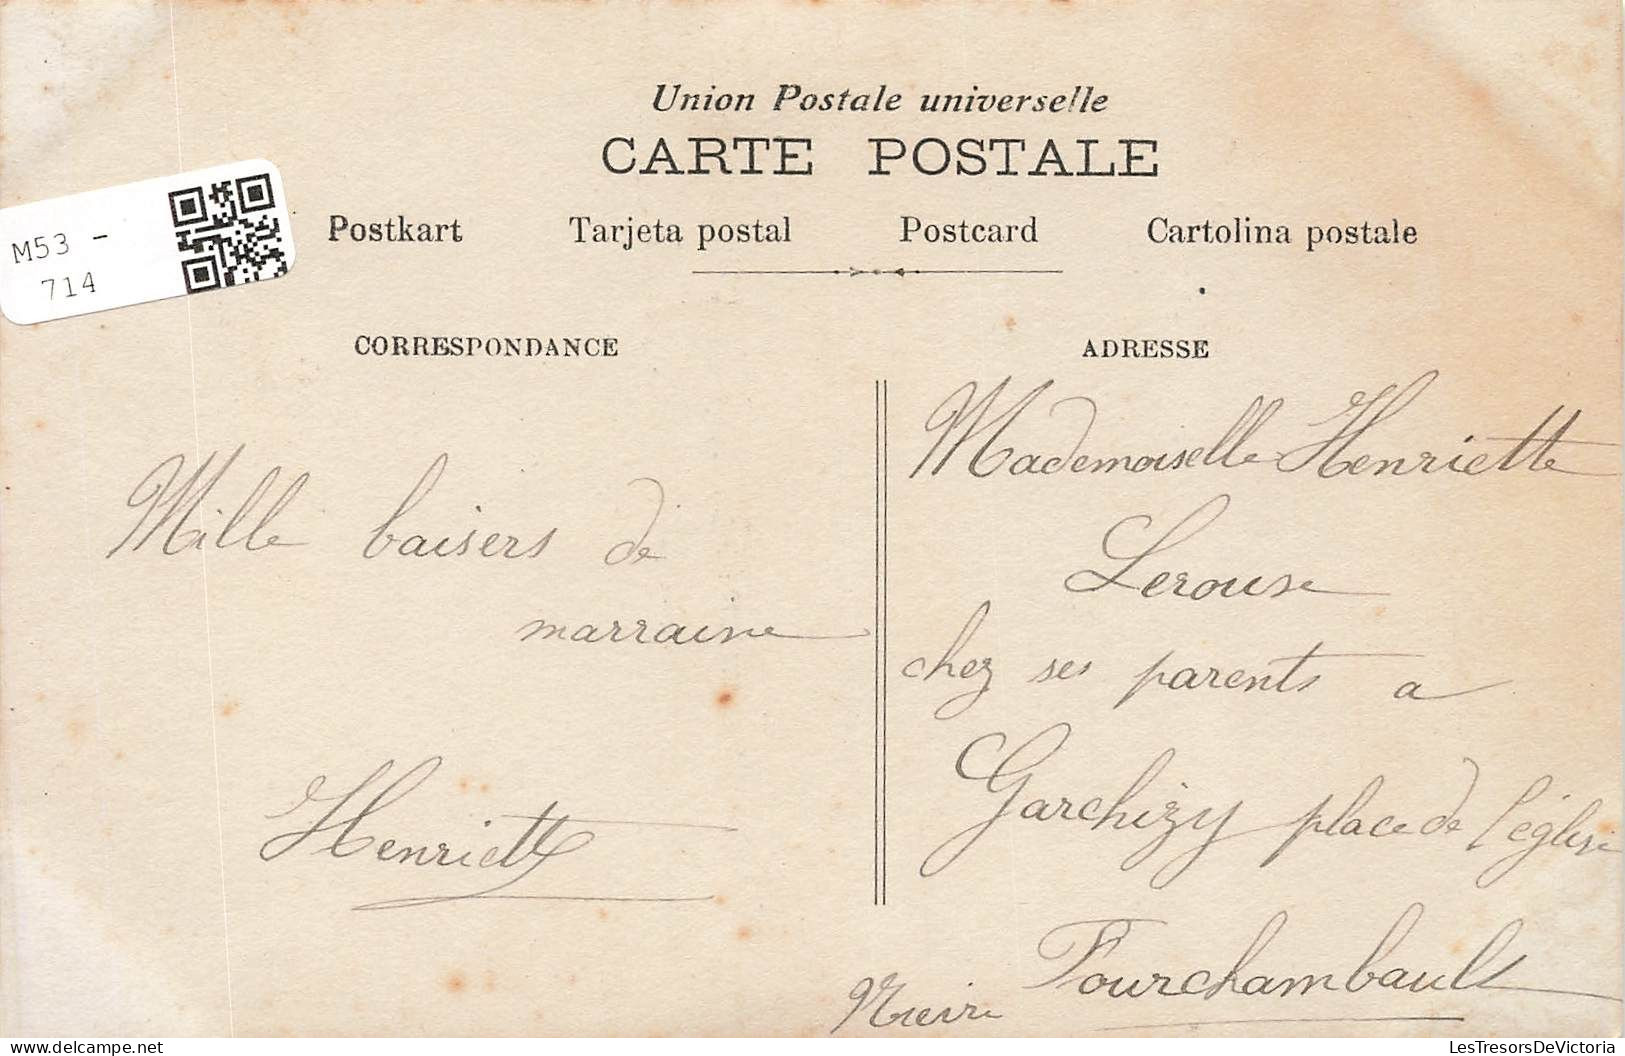 Union Postale universelle
CARTE POSTALE
Postkart Tarjeta postal Postcard Cartolina postale
M53 -
714
CORRESPONDANCE
Mille baisers de
marraine
Henriette
ADRESSE
Mademoiselle Henriette
Lerouse
chez ses parents a
Garchizy place de l'église
Fourchambault
Nievre
LesTresorsDeVictoria